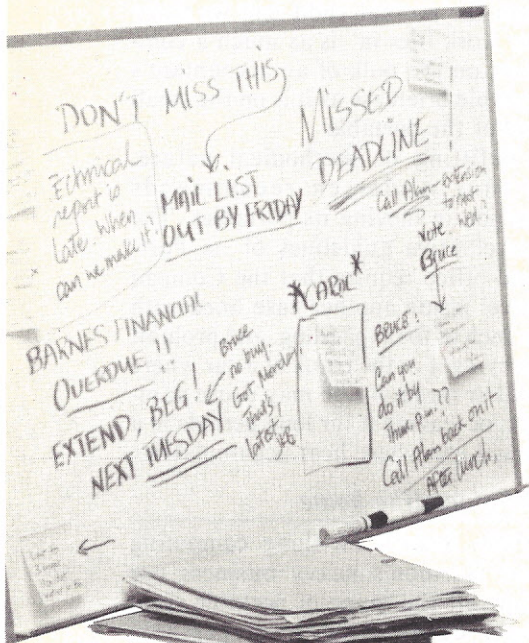 DON'T MISS THIS
Technical
report is
late. When
can we make it?
MAIL LIST
OUT BY FRIDAY
MISSED
DEADLINE
!
Call Alan – extension
to next
week?
Vote
Bruce
BARNES FINANCIAL
OVERDUE!!
EXTEND, BEG!
NEXT TUESDAY
Bruce
no buy.
Got Monday,
That's
latest,
*CAROL*
BRUCE:
Can you
do it by
Thur. p.m.??
Call Alan back on it
AFTER lunch,